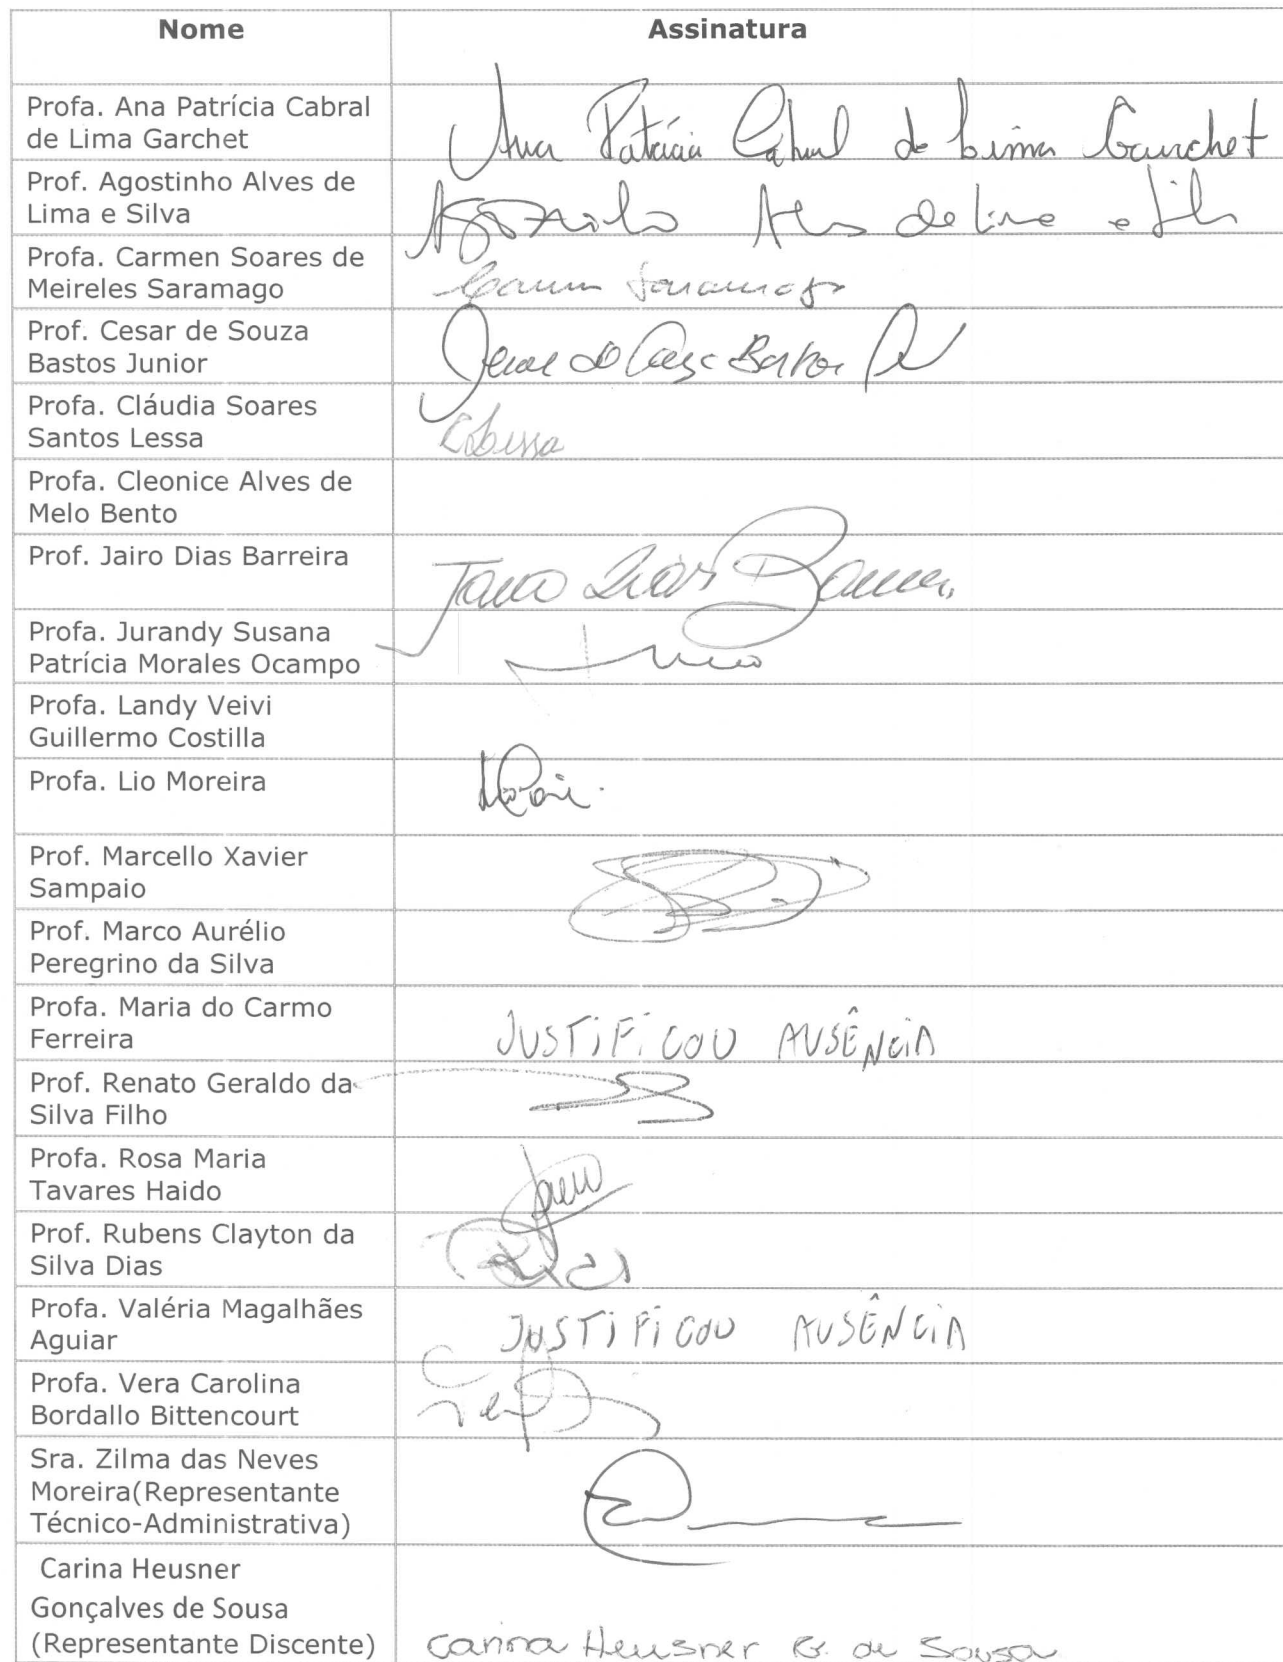 Nome Assinatura
Profa. Ana Patrícia Cabral
de Lima Garchet
Ana Patrícia Cabral de Lima Garchet
Prof. Agostinho Alves de
Lima e Silva
Agostinho Alves de Lima e Silva
Profa. Carmen Soares de
Meireles Saramago
Carmen Saramago
Prof. Cesar de Souza
Bastos Junior
Profa. Cláudia Soares
Santos Lessa
Profa. Cleonice Alves de
Melo Bento
Prof. Jairo Dias Barreira
Jairo Dias Barreira
Profa. Jurandy Susana
Patrícia Morales Ocampo
Profa. Landy Veivi
Guillermo Costilla
Profa. Lio Moreira
Prof. Marcello Xavier
Sampaio
Prof. Marco Aurélio
Peregrino da Silva
Profa. Maria do Carmo
Ferreira
JUSTIFICOU AUSÊNCIA
Prof. Renato Geraldo da
Silva Filho
Profa. Rosa Maria
Tavares Haido
Prof. Rubens Clayton da
Silva Dias
Profa. Valéria Magalhães
Aguiar
JUSTIFICOU AUSÊNCIA
Profa. Vera Carolina
Bordallo Bittencourt
Sra. Zilma das Neves
Moreira(Representante
Técnico-Administrativa)
Carina Heusner
Gonçalves de Sousa
(Representante Discente)
Carina Heusner G. de Sousa